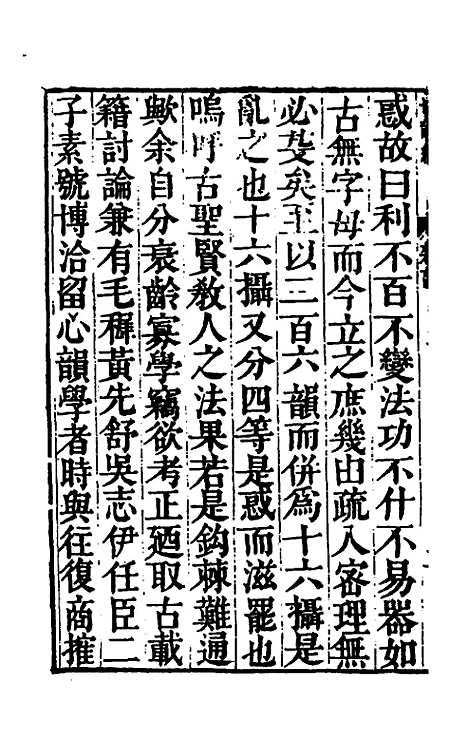 惑故曰利不百不變法功不什不易器如
古無字母而今立之庶幾由疏入密理無
必廢矣至以二百六韻而併為十六攝是
亂之也十六攝又分四等是惑而滋罷也
嗚呼古聖賢敎人之法果若是鈎棘難通
歟余自分衰齡寡學竊欲考正廼取古載
籍討論兼有毛稺黃先舒吳志伊任臣二
子素號博洽留心韻學者時與往復商搉